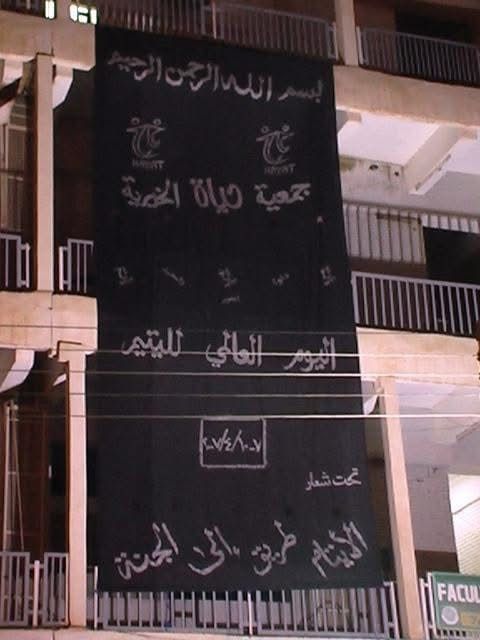 بسم الله الرحمن الرحيم
HAYAT HAYAT
جمعية حياة الخيرية
اليوم العالمي لليتيم
تحت شعار
الأيتام طريق إلى الجنة
FACUL